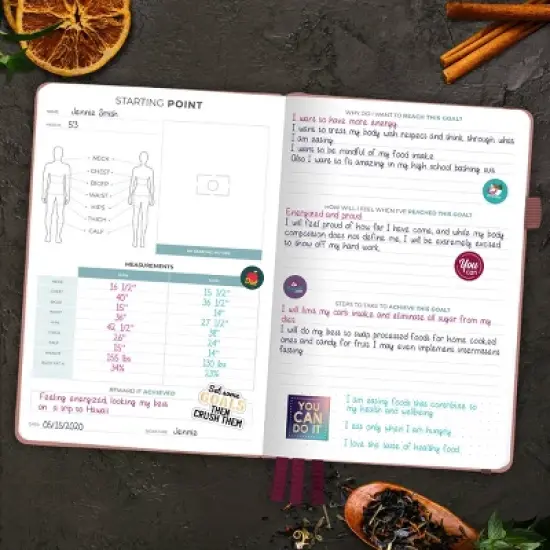 STARTING POINT
NAME Jennie Smith
HEIGHT 5'3
NECK
CHEST
BICEP
WAIST
HIPS
THIGH
CALF
MY BEFORE PICTURE
MEASUREMENTS
NECK 16 1/2" 15 1/2"
CHEST 40" 36 1/2"
BICEP 15" 14"
WAIST 36" 27 1/2"
HIPS 42 1/2" 38"
THIGH 26" 24"
CALF 15" 14"
WEIGHT 155 lbs 130 lbs
BODY FAT % 34% 23%
REWARD IF ACHIEVED
Feeling energized, looking my best
on a trip to Hawaii
Set some
GOALS
THEN
CRUSH THEM
DATE 05/15/2020 SIGNATURE Jennie
WHY DO I WANT TO REACH THIS GOAL?
I want to have more energy.
I want to treat my body with respect and think through what
I am eating.
I want to be mindful of my food intake.
Also I want to fit amazing in my high school bathing suit
HOW WILL I FEEL WHEN I'VE REACHED THIS GOAL?
Energized and proud
I will feel proud of how far I have come, and while my body
composition does not define me, I will be extremely excited
to show off my hard work.
You
can
STEPS TO TAKE TO ACHIEVE THIS GOAL?
I will limit my carb intake and eliminate all sugar from my
diet.
I will do my best to swap processed foods for home cooked
ones and candy for fruit. I may even implement intermittent
fasting.
YOU
CAN
DO IT
I am eating foods that contribute to
my health and wellbeing
I eat only when I am hungry
I love the taste of healthy food